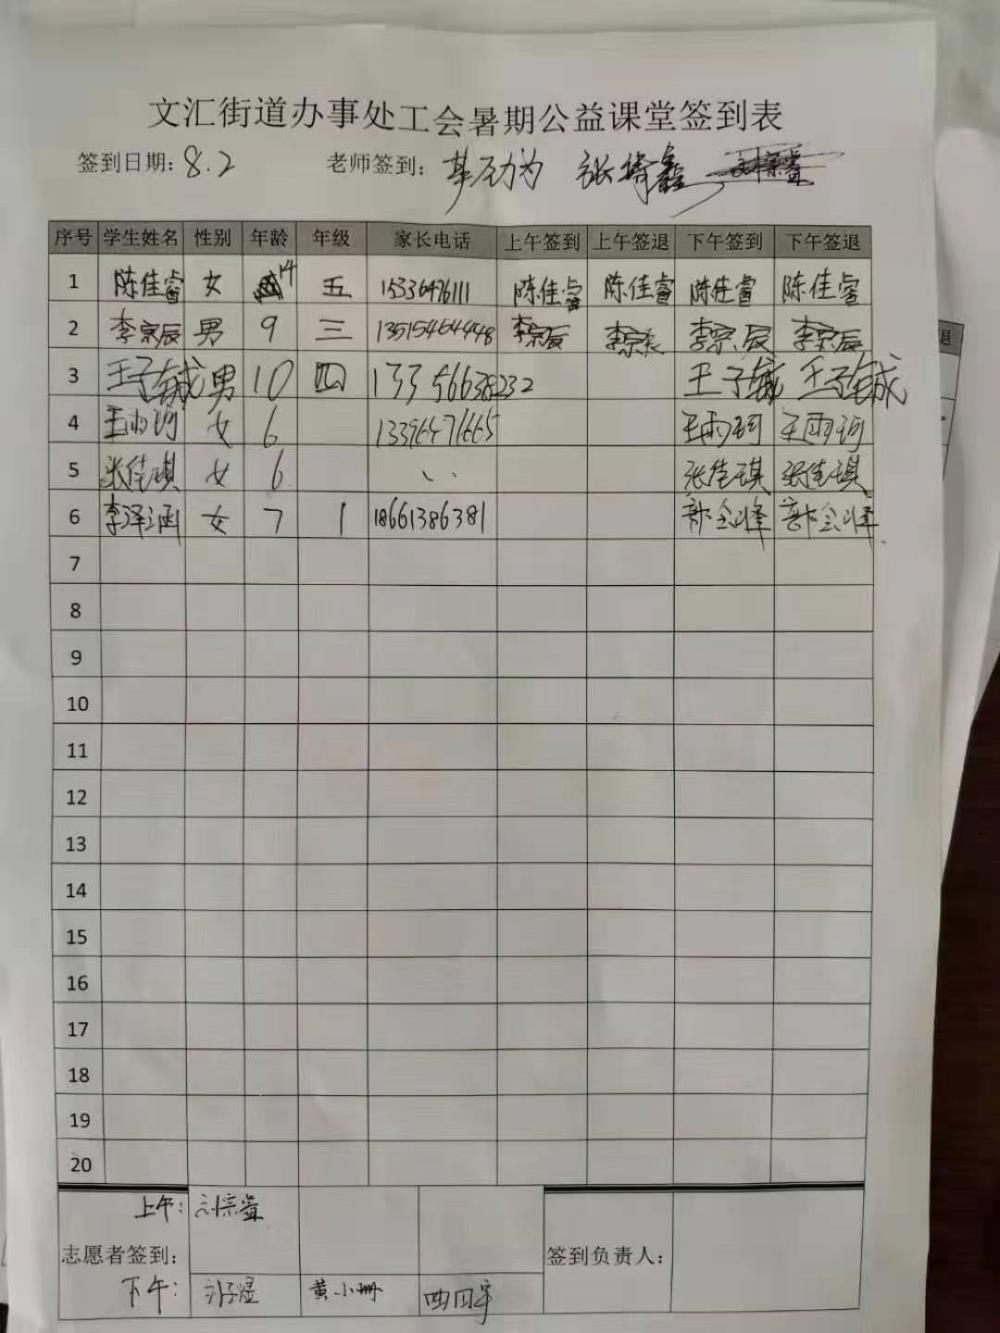 文汇街道办事处工会暑期公益课堂签到表
签到日期: 8.2 老师签到:
序号 学生姓名 性别 年龄 年级 家长电话 上午签到 上午签退 下午签到 下午签退
1 陈佳睿 女 14 五 15336476111 陈佳睿 陈佳睿 陈佳睿 陈佳睿
2 李宗辰 男 9 三 13515464448 李宗辰 李宗辰 李宗辰 李宗辰
3 王子铖 男 10 四 13356638232 王子铖 王子铖
4 王雨珂 女 6 13396471665 王雨珂 王雨珂
5 张佳琪 女 6 、、 张佳琪 张佳琪
6 李泽涵 女 7 1 18661386381
7
8
9
10
11
12
13
14
15
16
17
18
19
20
上午:
志愿者签到: 签到负责人:
下午: 黄小珊